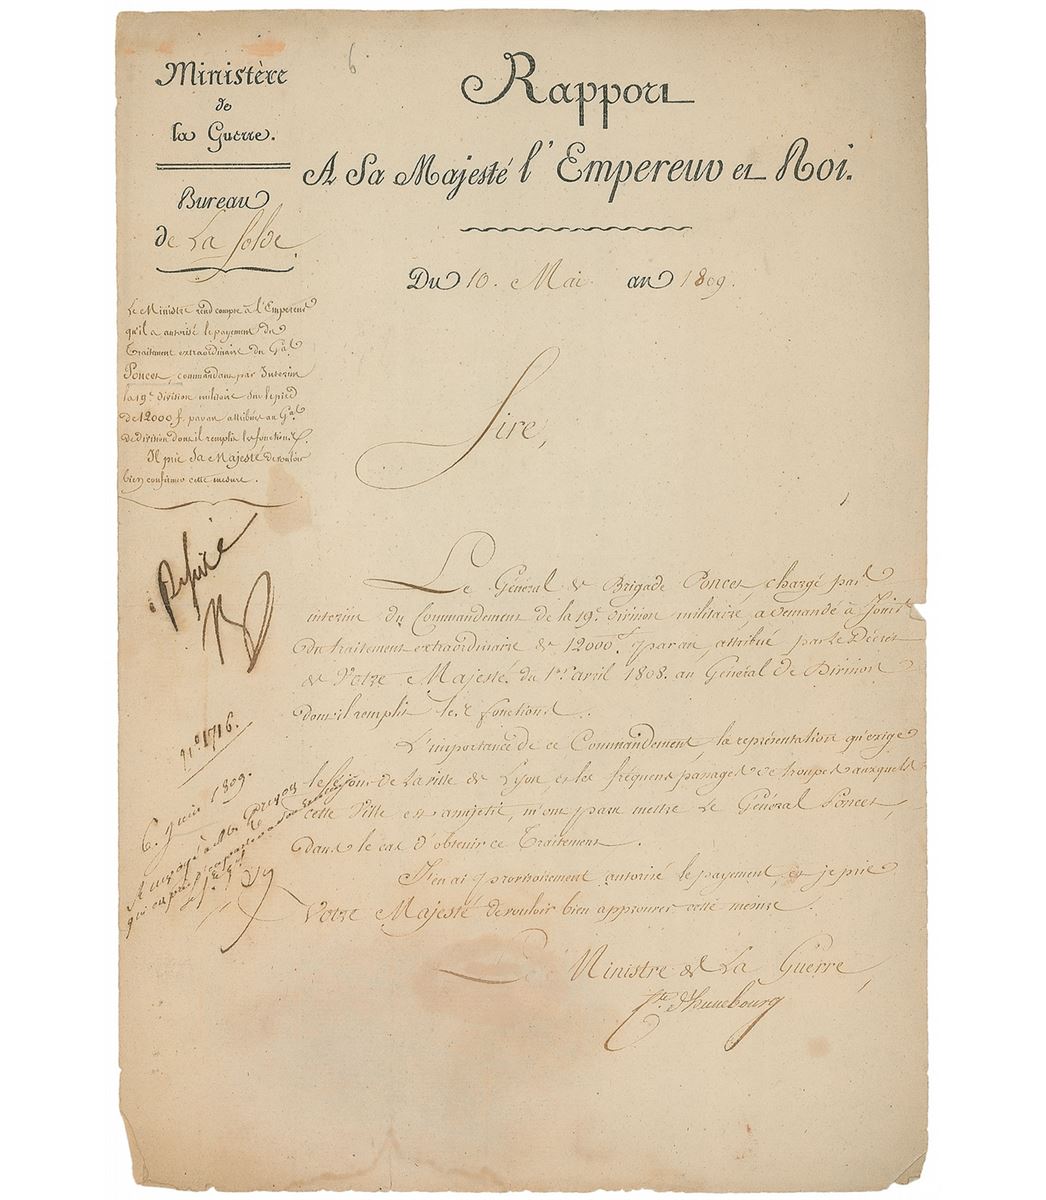 6
Ministère
de
la Guerre.
Bureau
de La Solde
Rapport
A Sa Majesté l'Empereur et Roi.
Du 10. Mai an 1809.
Le Ministre rend compte à l'Empereur
qu'il a autorisé le payement du
Traitement extraordinaire du Gal
Poncet, commandant par Interim
la 19e division militaire sur le pied
de 12000 f. par an attribués au Gal
de division dont il remplit les fonctions.
Il prie Sa Majesté de vouloir
bien confirmer cette mesure.
Sire,
Le Général de Brigade Poncet, chargé par
interim du Commandement de la 19e. division militaire, a demandé à Jouir
du traitement extraordinaire de 12000f. par an, attribué par le Décret
de Votre Majesté du 1er. avril 1808. au Général de Division
dont il remplit les fonctions.
L'importance de ce Commandement, la représentation qu'exige
le séjour de la ville de Lyon, et les fréquens passages de troupes auxquels
cette Ville est assujetie, m'ont paru mettre Le Général Poncet,
dans le cas d'obtenir ce Traitement.
J'en ai provisoirement autorisé le payement, et je prie
Votre Majesté de vouloir bien approuver cette mesure.
Le Ministre de La Guerre,
Cte. d'hunebourg
Refusé
n° 1716.
6. Juin 1809.